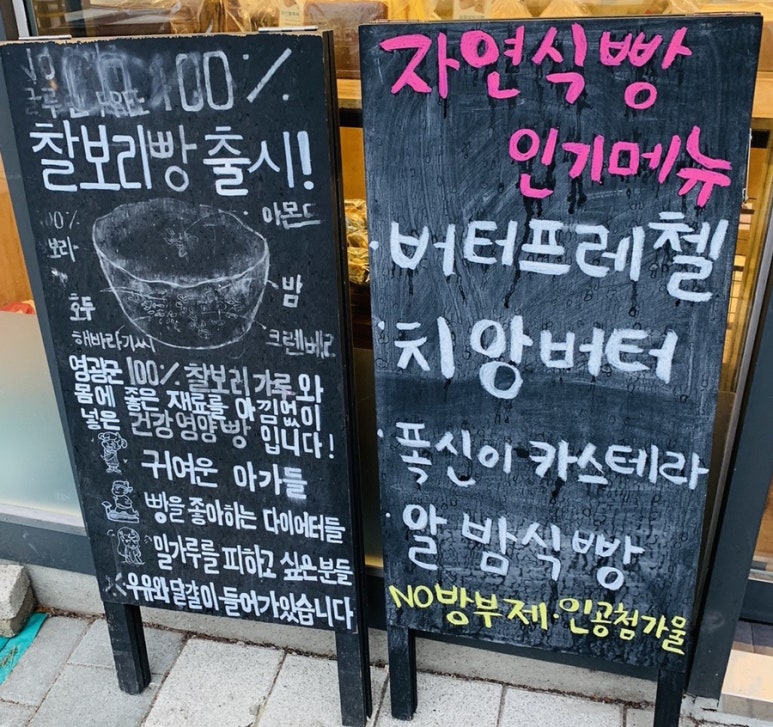 NO
100%
찰보리빵 출시!
100%
보리
아몬드
밤
호두
해바라기씨
크렌베리
영광군 100% 찰보리가루와
몸에 좋은 재료를 아낌없이
넣은 건강영양빵 입니다!
귀여운 아가들
빵을 좋아하는 다이어터들
밀가루를 피하고 싶은분들
※우유와달걀이들어가있습니다
자연식빵
인기메뉴
·버터프레첼
·치앙버터
·폭신이 카스테라
·알밤식빵
NO방부제·인공첨가물